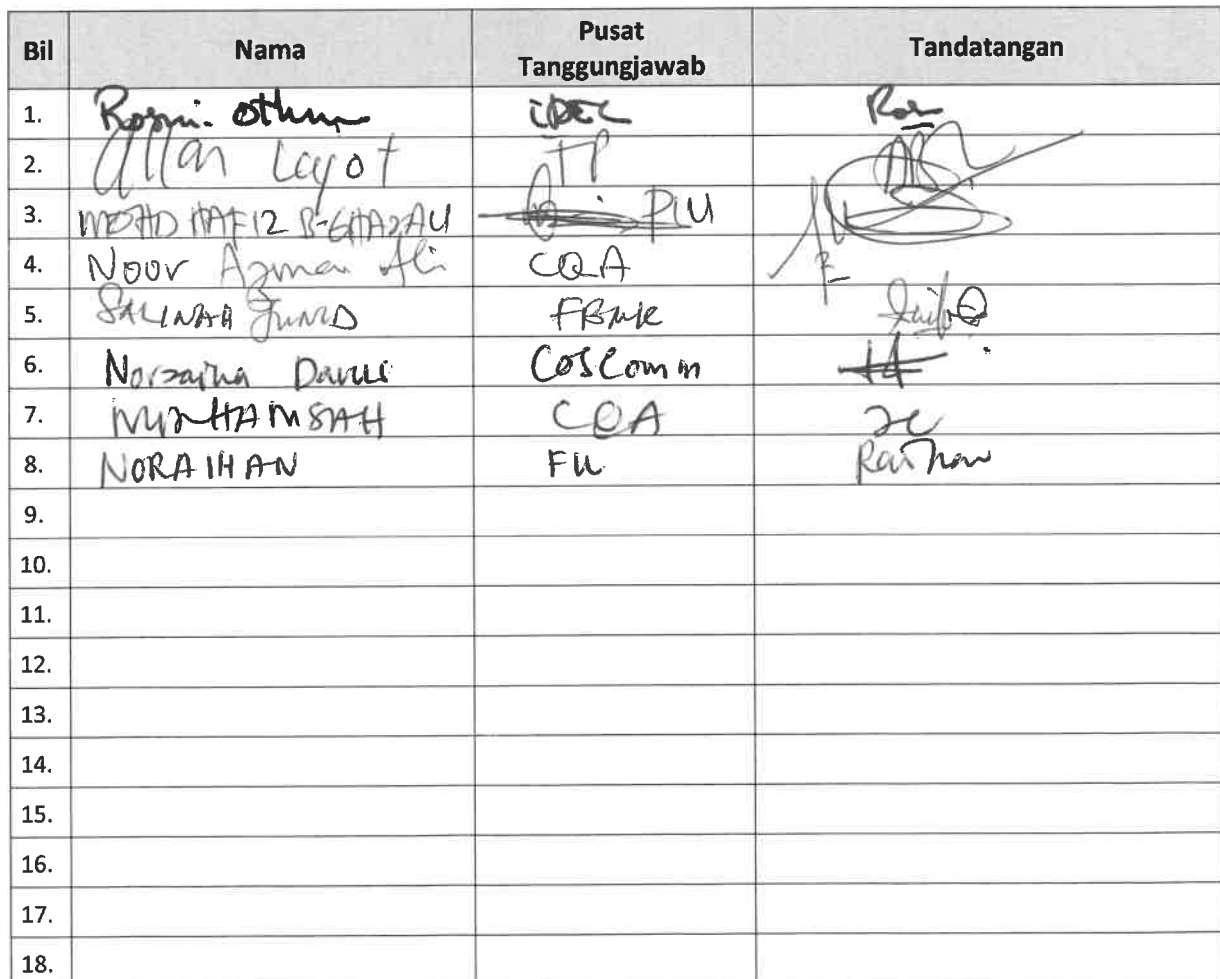 Bil Nama Pusat Tanggungjawab Tandatangan
1. Rosmi Othman iDEC Ros
2. Allan Layot TP
3. MOHD HAFIZ B. GHAZALI PIU
4. Noor Azman Ali CQA
5. SALINAH JUNID FBMK
6. Norzaina Darus COSComm
7. HAMSAH CQA
8. NORAIHAN Raihan
9.
10.
11.
12.
13.
14.
15.
16.
17.
18.